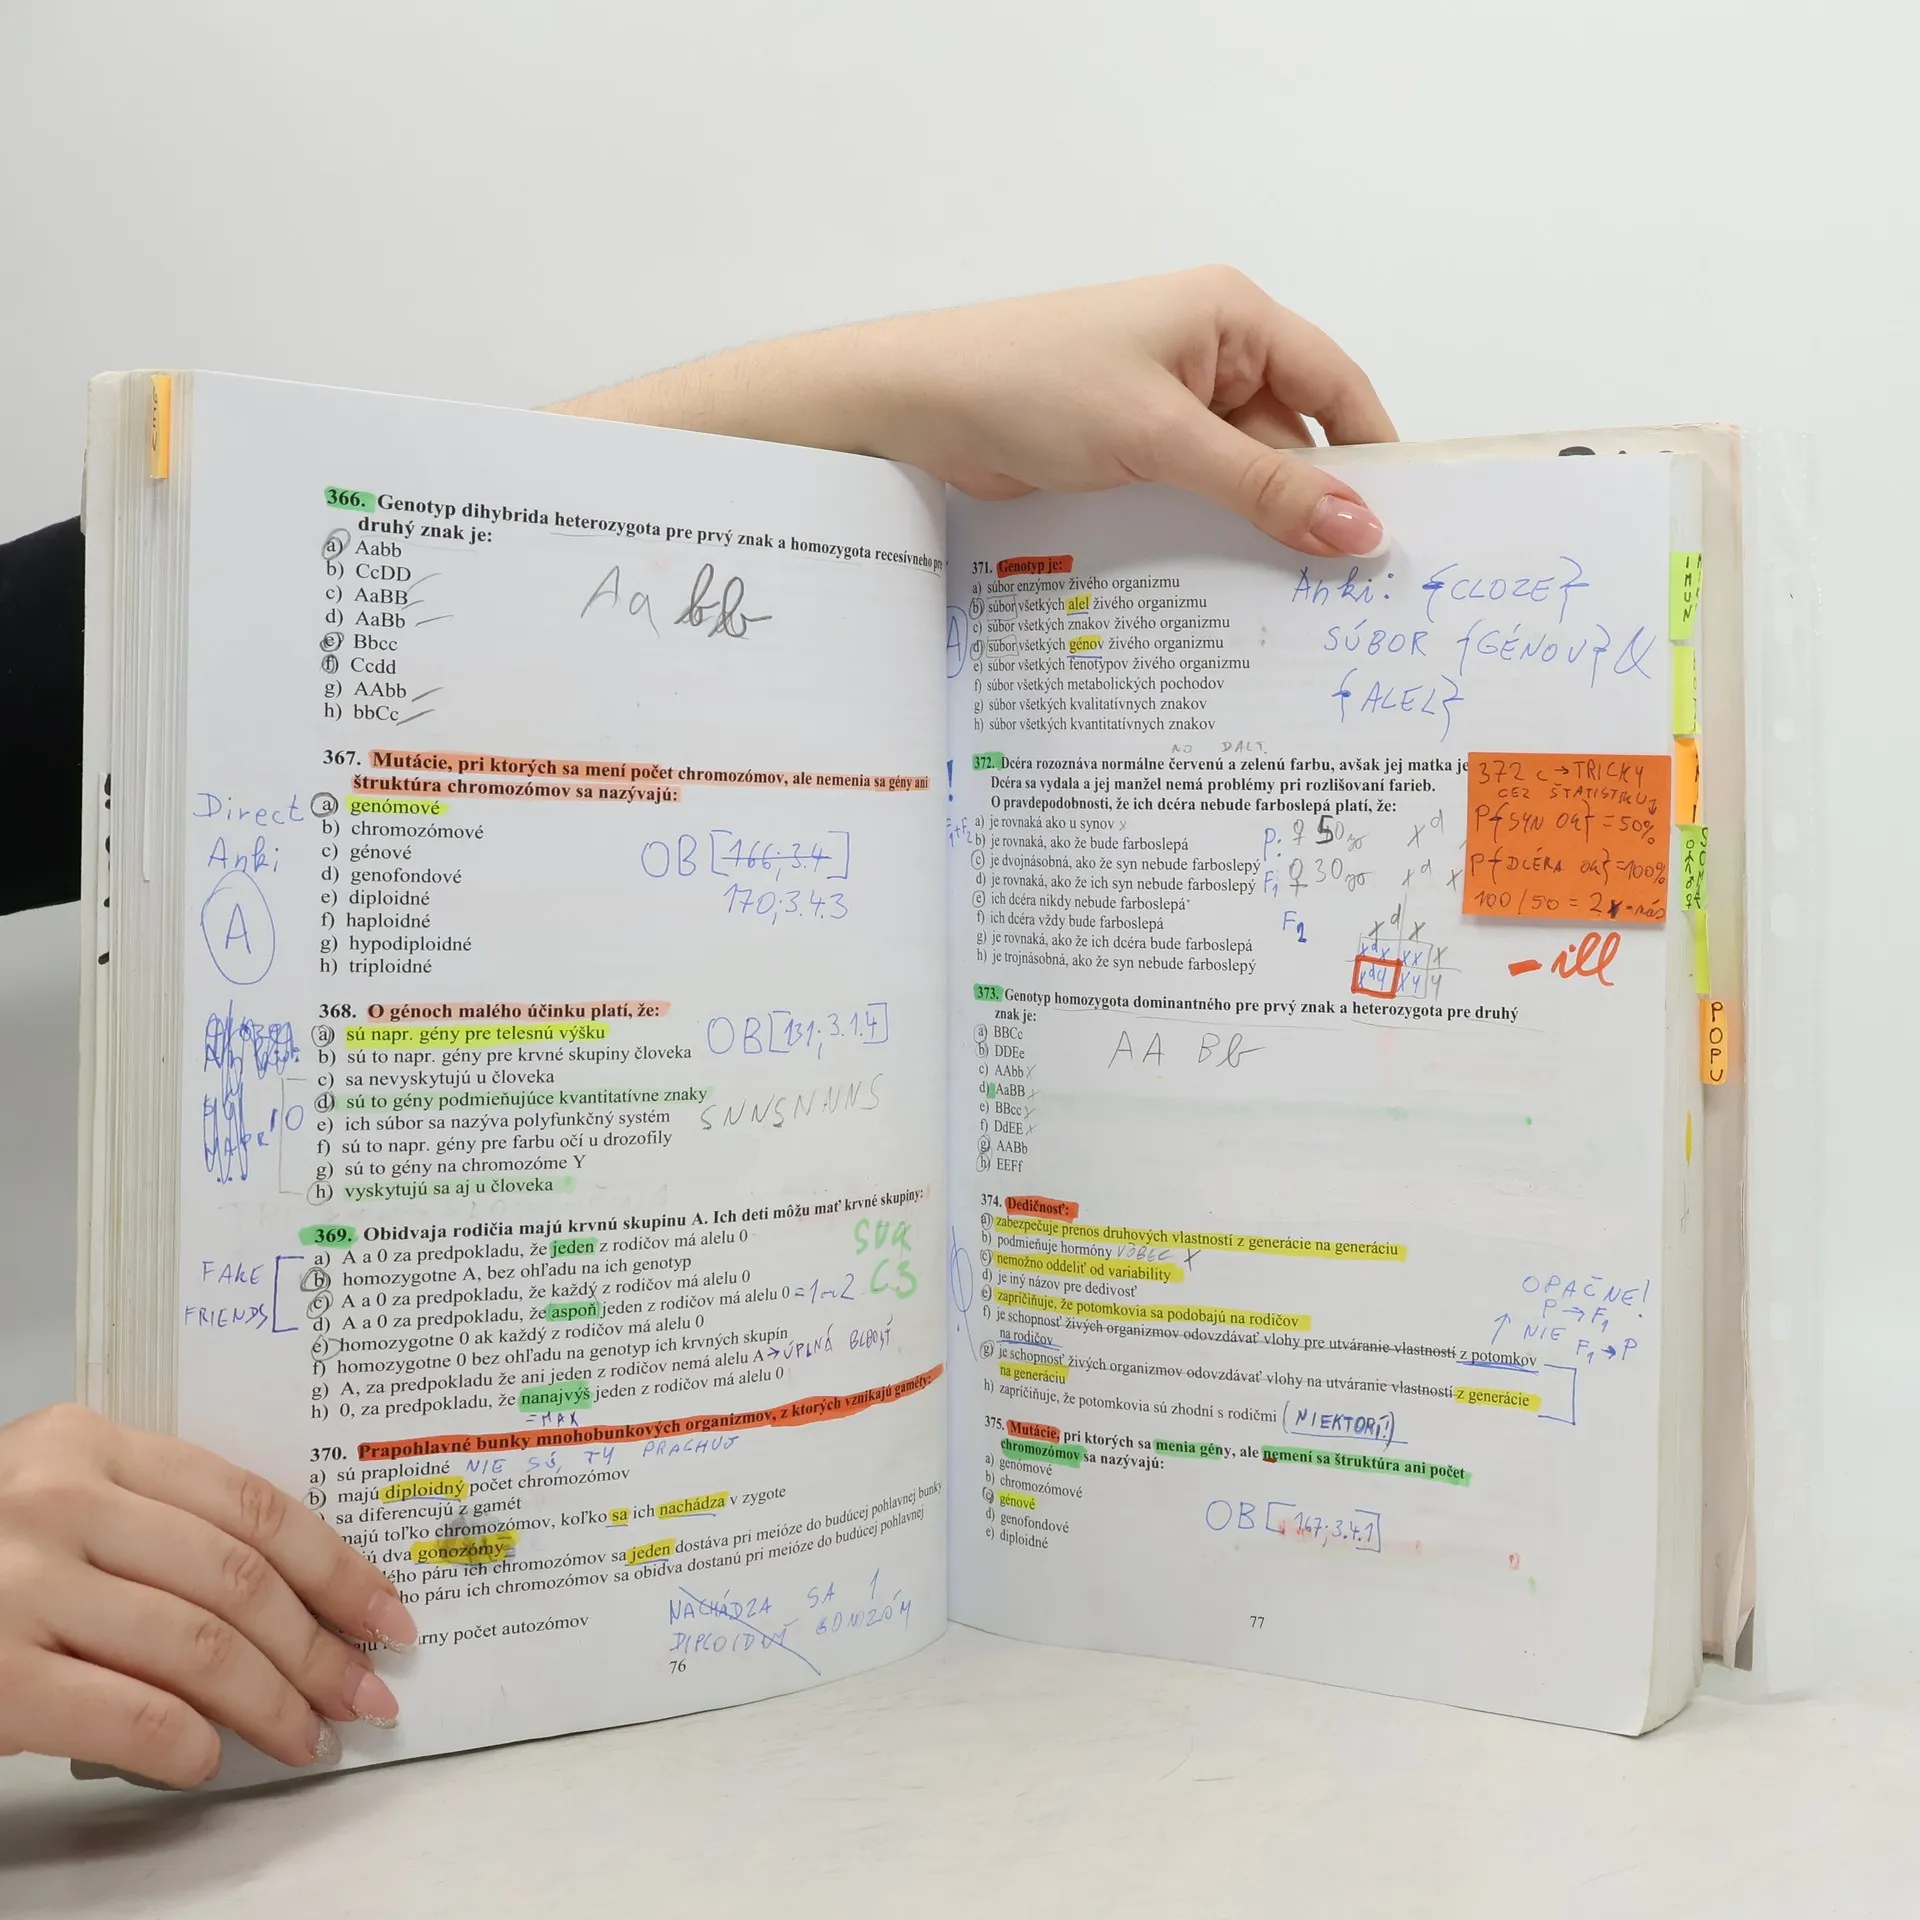 366. Genotyp dihybrida heterozygota pre prvý znak a homozygota recesívneho pre
druhý znak je:
a) Aabb
b) CcDD
c) AaBB
d) AaBb
e) Bbcc
f) Ccdd
g) AAbb
h) bbCc
Aa bb
367. Mutácie, pri ktorých sa mení počet chromozómov, ale nemenia sa gény ani
štruktúra chromozómov sa nazývajú:
a) genómové
b) chromozómové
c) génové
d) genofondové
e) diploidné
f) haploidné
g) hypodiploidné
h) triploidné
Direct
Anki
A
OB [166; 3.4]
170; 3.4.3
368. O génoch malého účinku platí, že:
a) sú napr. gény pre telesnú výšku
b) sú to napr. gény pre krvné skupiny človeka
c) sa nevyskytujú u človeka
d) sú to gény podmieňujúce kvantitatívne znaky
e) ich súbor sa nazýva polyfunkčný systém
f) sú to napr. gény pre farbu očí u drozofily
g) sú to gény na chromozóme Y
h) vyskytujú sa aj u človeka
OB [131; 3.1.4]
SNNSNNNS
369. Obidvaja rodičia majú krvnú skupinu A. Ich deti môžu mať krvné skupiny:
a) A a 0 za predpokladu, že jeden z rodičov má alelu 0
b) homozygotne A, bez ohľadu na ich genotyp
c) A a 0 za predpokladu, že každý z rodičov má alelu 0
d) A a 0 za predpokladu, že aspoň jeden z rodičov má alelu 0 = 1 or 2
e) homozygotne 0 ak každý z rodičov má alelu 0
f) homozygotne 0 bez ohľadu na genotyp ich krvných skupín
g) A, za predpokladu že ani jeden z rodičov nemá alelu A → ÚPLNÁ BLBOSŤ
h) 0, za predpokladu, že nanajvýš jeden z rodičov má alelu 0
= MAX
FAKE
FRIENDS
370. Prapohlavné bunky mnohobunkových organizmov, z ktorých vznikajú gaméty:
a) sú praploidné NIE SÚ, TY PRACHUJ
b) majú diploidný počet chromozómov
sa diferencujú z gamét
majú toľko chromozómov, koľko sa ich nachádza v zygote
dva gonozómy
páru ich chromozómov sa jeden dostáva pri meióze do budúcej pohlavnej bunky
ho páru ich chromozómov sa obidva dostanú pri meióze do budúcej pohlavnej
počet autozómov
NACHÁDZA SA 1
DIPLOIDNÝ GONOZÓM
76
371. Genotyp je:
a) súbor enzýmov živého organizmu
b) súbor všetkých alel živého organizmu
c) súbor všetkých znakov živého organizmu
d) súbor všetkých génov živého organizmu
e) súbor všetkých fenotypov živého organizmu
f) súbor všetkých metabolických pochodov
g) súbor všetkých kvalitatívnych znakov
h) súbor všetkých kvantitatívnych znakov
Anki: {CLOZE}
SÚBOR {GÉNOV} &
{ALEL}
NO DALT.
372. Dcéra rozoznáva normálne červenú a zelenú farbu, avšak jej matka je
Dcéra sa vydala a jej manžel nemá problémy pri rozlišovaní farieb.
O pravdepodobnosti, že ich dcéra nebude farboslepá platí, že:
a) je rovnaká ako u synov x
b) je rovnaká, ako že bude farboslepá
c) je dvojnásobná, ako že syn nebude farboslepý
d) je rovnaká, ako že ich syn nebude farboslepý
e) ich dcéra nikdy nebude farboslepá
f) ich dcéra vždy bude farboslepá
g) je rovnaká, ako že ich dcéra bude farboslepá
h) je trojnásobná, ako že syn nebude farboslepý
F2
372 c → TRICKY
CEZ ŠTATISTIKU
P{SYN OK} = 50%
P{DCÉRA OK} = 100%
100/50 = 2x-
- ill
373. Genotyp homozygota dominantného pre prvý znak a heterozygota pre druhý
znak je:
a) BBCc
b) DDEe
c) AAbb x
d) AaBB x
e) BBcc x
f) DdEE x
g) AABb
h) EEFf
AA Bb
374. Dedičnosť:
a) zabezpečuje prenos druhových vlastností z generácie na generáciu
b) podmieňuje hormóny VÔBEC X
c) nemožno oddeliť od variability
d) je iný názov pre dedivosť
e) zapríčiňuje, že potomkovia sa podobajú na rodičov
f) je schopnosť živých organizmov odovzdávať vlohy pre utváranie vlastností z potomkov
na rodičov
g) je schopnosť živých organizmov odovzdávať vlohy na utváranie vlastností z generácie
na generáciu
h) zapríčiňuje, že potomkovia sú zhodní s rodičmi (NIEKTORÍ!)
OPAČNE!
P → F1
↑ NIE
F1 → P
375. Mutácie, pri ktorých sa menia gény, ale nemení sa štruktúra ani počet
chromozómov sa nazývajú:
a) genómové
b) chromozómové
c) génové
d) genofondové
e) diploidné
OB [167; 3.4.1]
77
IMUN
POPU